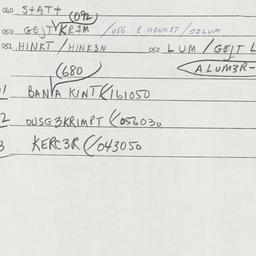 040 S+AT+
(092)
050 GEJT KRIM /056 EHINKIT/12LUM
051 HINKT / HINK3N 052 LUM / GEJT L
(680 ALUM3R-
1 BANA KINT /161050
2 OUSG3KRIMPT /056030
3 KERC3R /043050